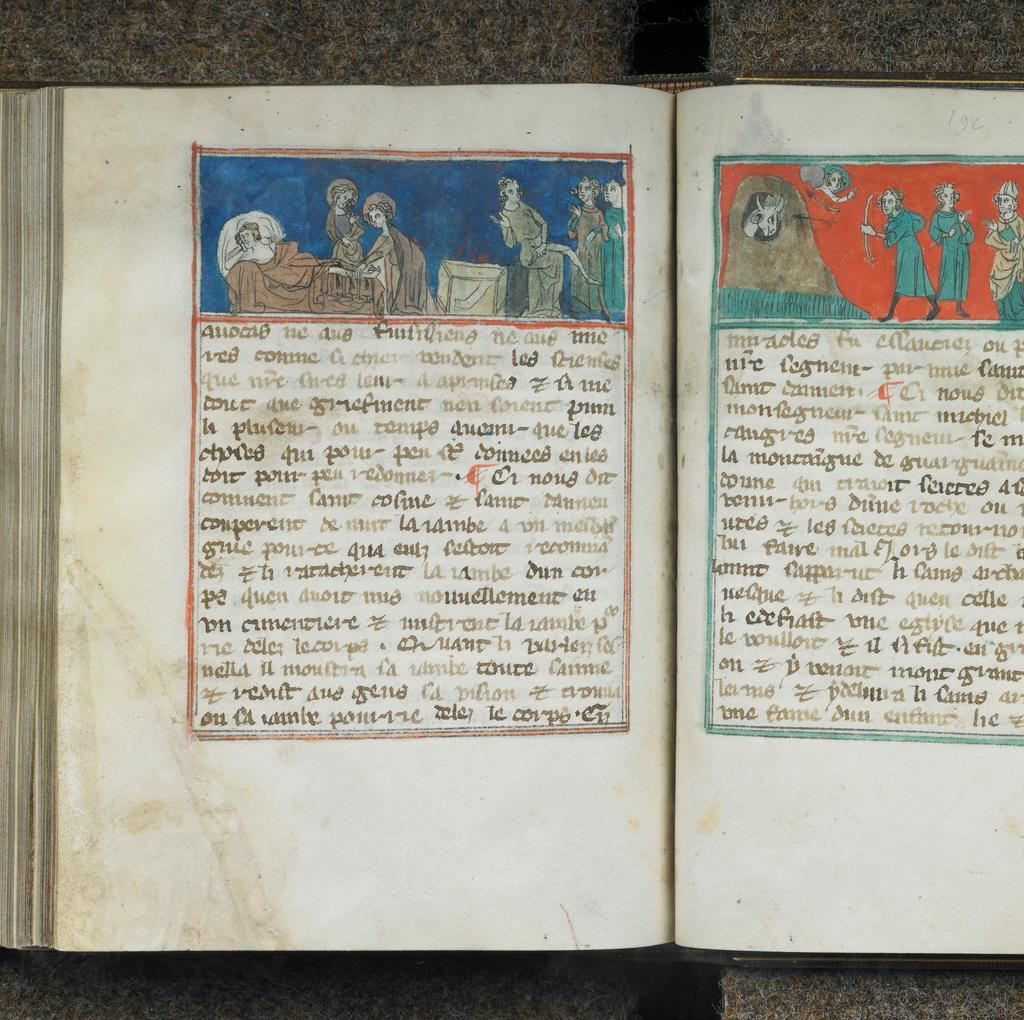 auocas ne aus fuisisiens ne aus mie
res comme si chier vendent les scienses
que nr̄e sires leur a aprinses ⁊ si me
dout que griefment nen soient puni
li pluseur ou temps auenir que les
choses qui pour peu st̄ donnees en les
doit pour peu redonner. ¶ Ci nous dit
comment saint cosme ⁊ saint damien
couperent de nuit la iambe a vn
grue pour ce qua eulz sestoit recomma
dez ⁊ li ratacherent la iambe dun cor
ps quen auoit mis nouuellement en
vn cimentiere ⁊ mistrent la iambe po
rie delez le corps. Quant li
uella il moustra sa iambe toute sainne
⁊ redist aus gens sa vision ⁊ trouua
on sa iambe pourrie delez le corps. En
192
miracles fu essauciez ou p
nr̄e segneur par mie saint
saint damien. ¶ Ci nous dit
monsegneur saint michiel l
cangres nr̄e segneur se m
la montaigne de
donne qui traioit seietes a s
venir hors dune roche ou
utes ⁊ les seietes retourno
lui faire mal Lors le dist
saparut li sains archa
uesque ⁊ li dist quen celle
li edefiast vne eglyse que
le voulloit ⁊ il si fist. en gr
on ⁊ y venoit mont grant
lerins ⁊ y deliura li sains ar
vne fame dun enfant lie ⁊